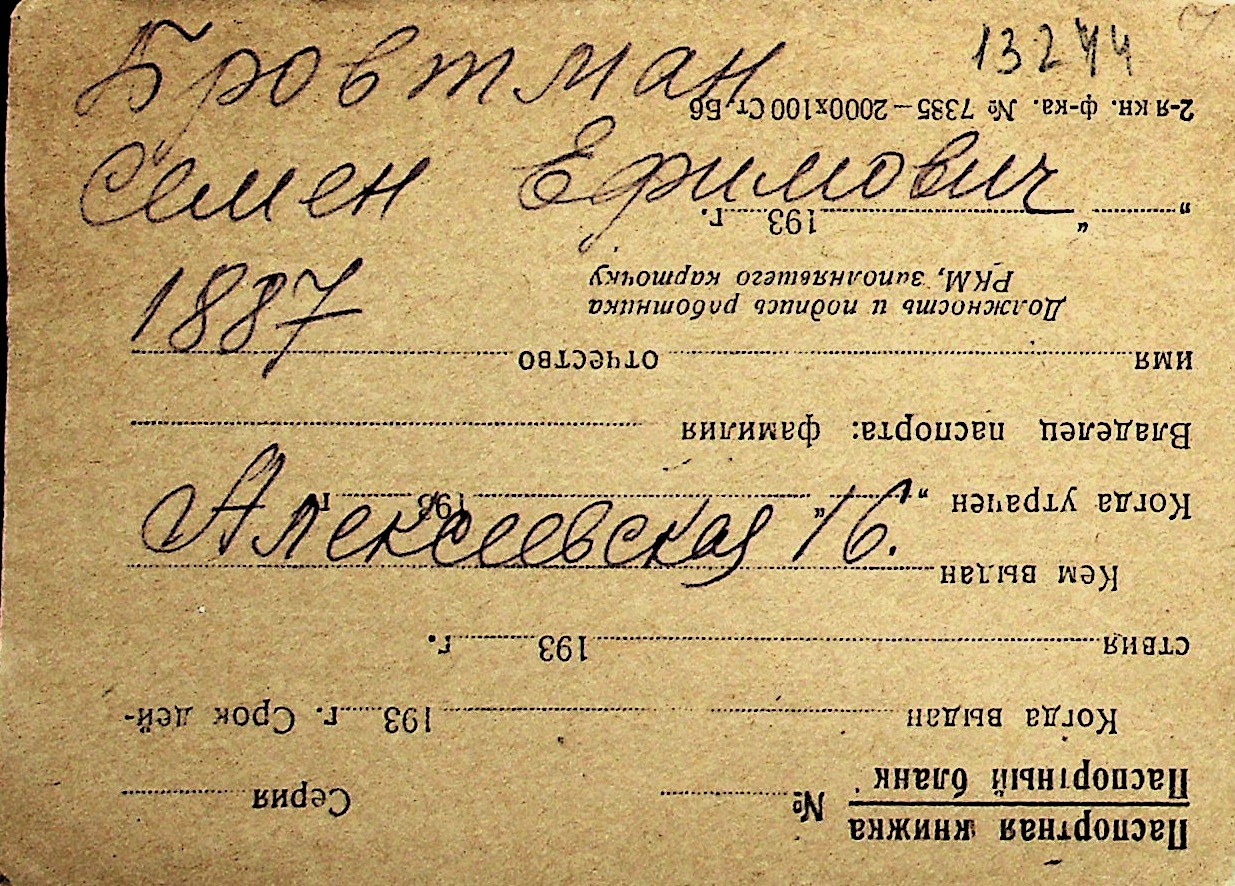 13244
Бровтман
Семен Ефимович
1887
Алексеевская 16.
Паспортная книжка
Паспортный бланк
№ Серия
Когда выдан 193 г. Срок дей-
ствия 193 г.
Кем выдан
Когда утрачен „ “ 193 г.
Владелец паспорта: фамилия
имя отчество
Должность и подпись работника
РКМ, заполнявшего карточку
„ “ 193 г.
2-я кн. ф-ка. № 7385—2000х100 Ст. Б6